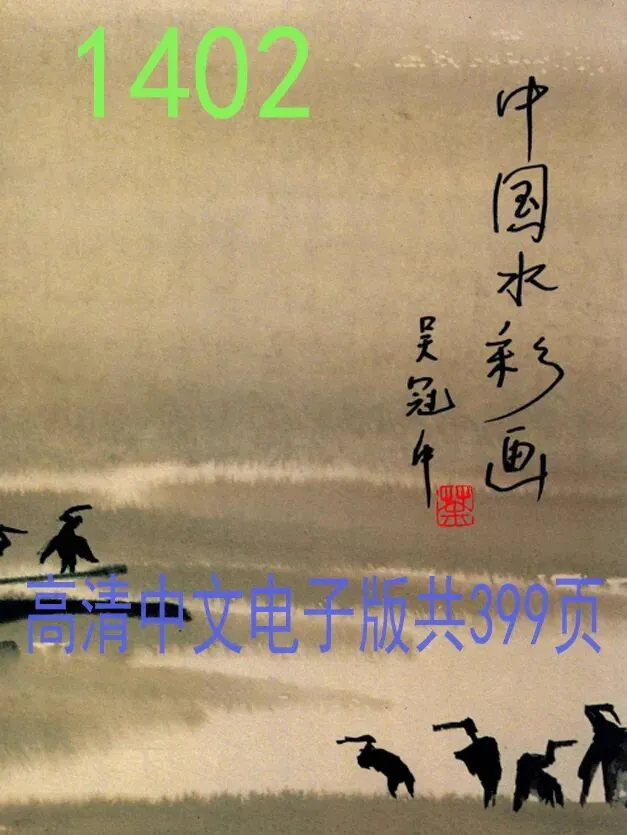 1402
中国水彩画
吴冠中
高清中文电子版共399页